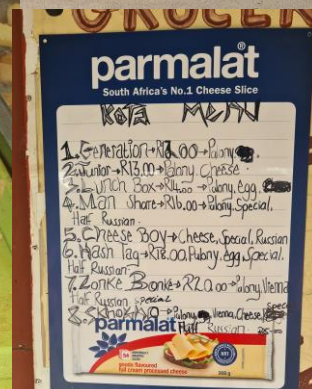 GROCER
parmalat®
South Africa's No.1 Cheese Slice
Kota Menu
1. Generation → R13.00 → Polony
2. Junior → R13.00 → Polony, Cheese
3. Lunch Box → R14.00 → Polony, egg,
4. Man Share → R16.00 → Polony, Special,
Half Russian
5. Cheese Boy → Cheese, Special, Russian
6. Hash Tag → R18.00, Polony, egg, Special,
Half Russian
7. Zonke Bonke → R20.00 → Polony, Vienna
Half Russian, Special
8. Polony, Vienna, Cheese,
parmalat Half Russian
goudo flavoured
full cream processed cheese